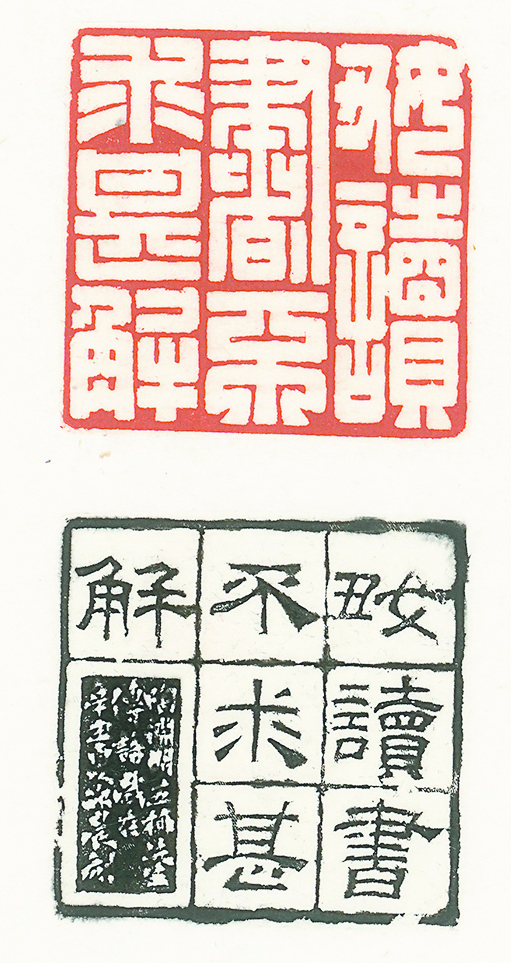 好讀
書不
求甚解
好讀書
不求甚
解
陶淵明五柳先生
傳語